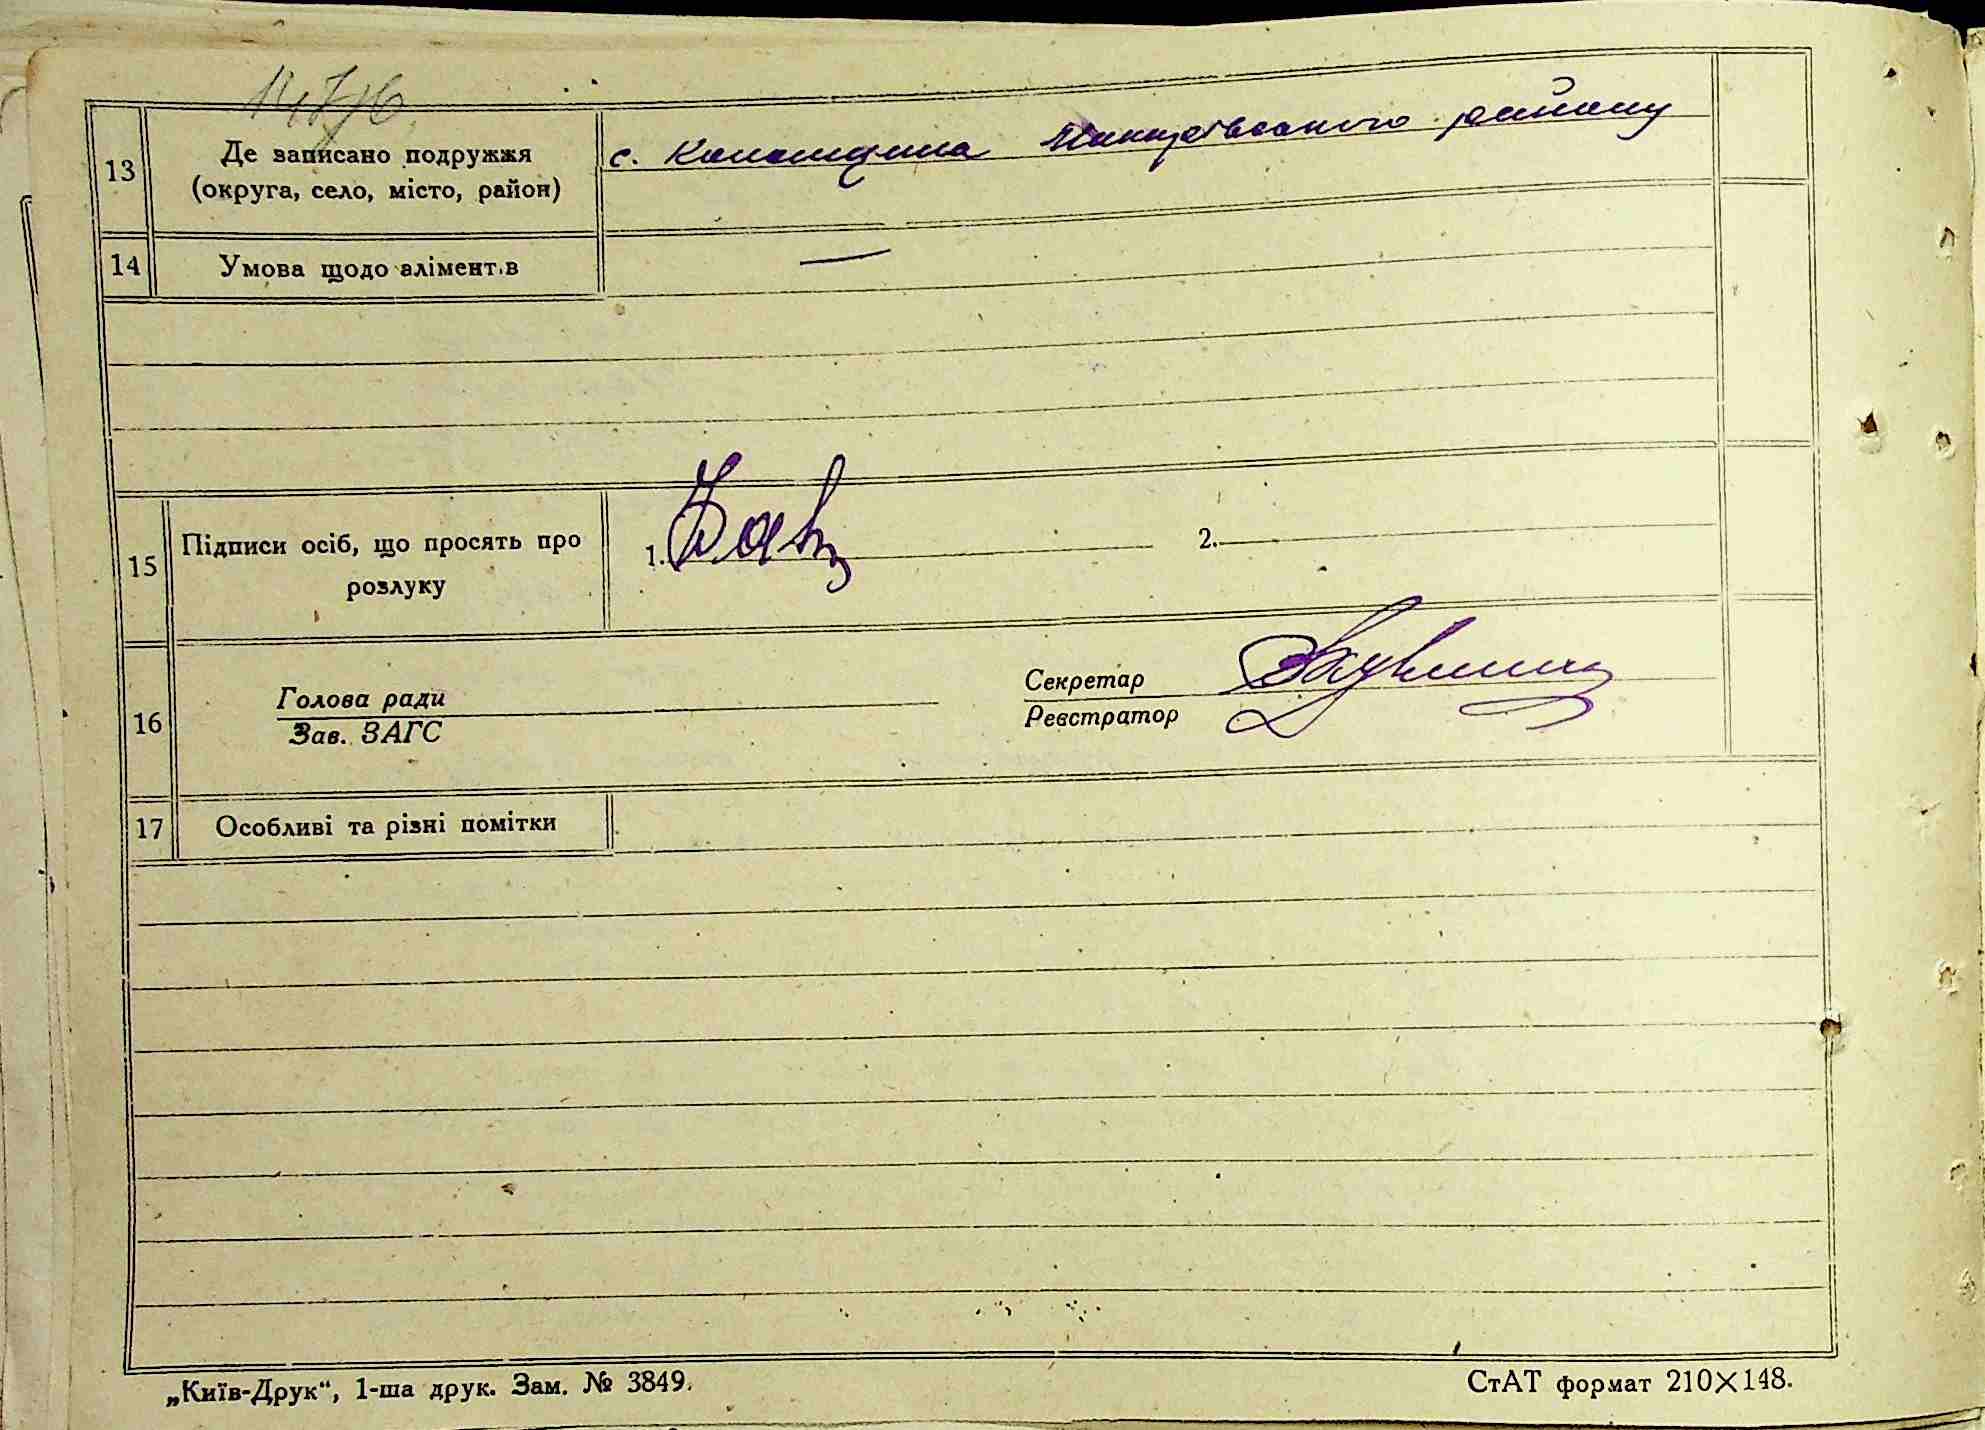 13
Де записано подружжя
(округа, село, місто, район)
с. району
14
Умова щодо алімент.в
—
15
Підписи осіб, що просять про
розлуку
1.
2.
16
Голова ради
Зав. ЗАГС
Секретар
Реєстратор
17
Особливі та різні помітки
„Київ-Друк“, 1-ша друк. Зам. № 3849.
СтАТ формат 210×148.